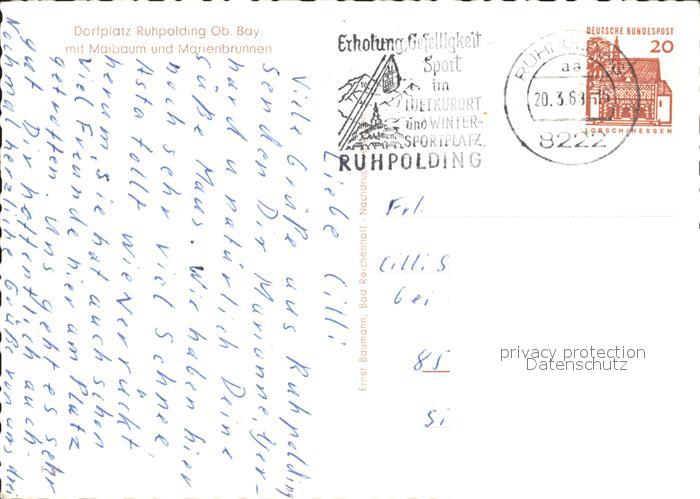 Dorfplatz Ruhpolding Ob. Bay.
mit Maibaum und Marienbrunnen
Erholung, Geselligkeit
Sport
im
LUFTKURORT
und WINTER-
SPORTPLATZ
RUHPOLDING
RUHPOLDING
20.3.68
8222
DEUTSCHE BUNDESPOST
20
LORSCH/HESSEN
Liebe Cilli
Viele Grüße aus Ruhpolding
senden Dir Marianne, Ger-
hard u natürlich Deine
Süße Maus. Wir haben hier
noch sehr viel Schnee,
Asta tollt wie verrückt
herum, sie hat auch schon
viel Freunde hier am Platz
getroffen. Uns geht es sehr
gut Dir hoffentlich auch.
Nochmal herzliche Grüße von uns drei
Ernst Baumann, Bad Reichenhall · Nachdruck
Frl.
Cilli S
bei
85
Si
privacy protection
Datenschutz